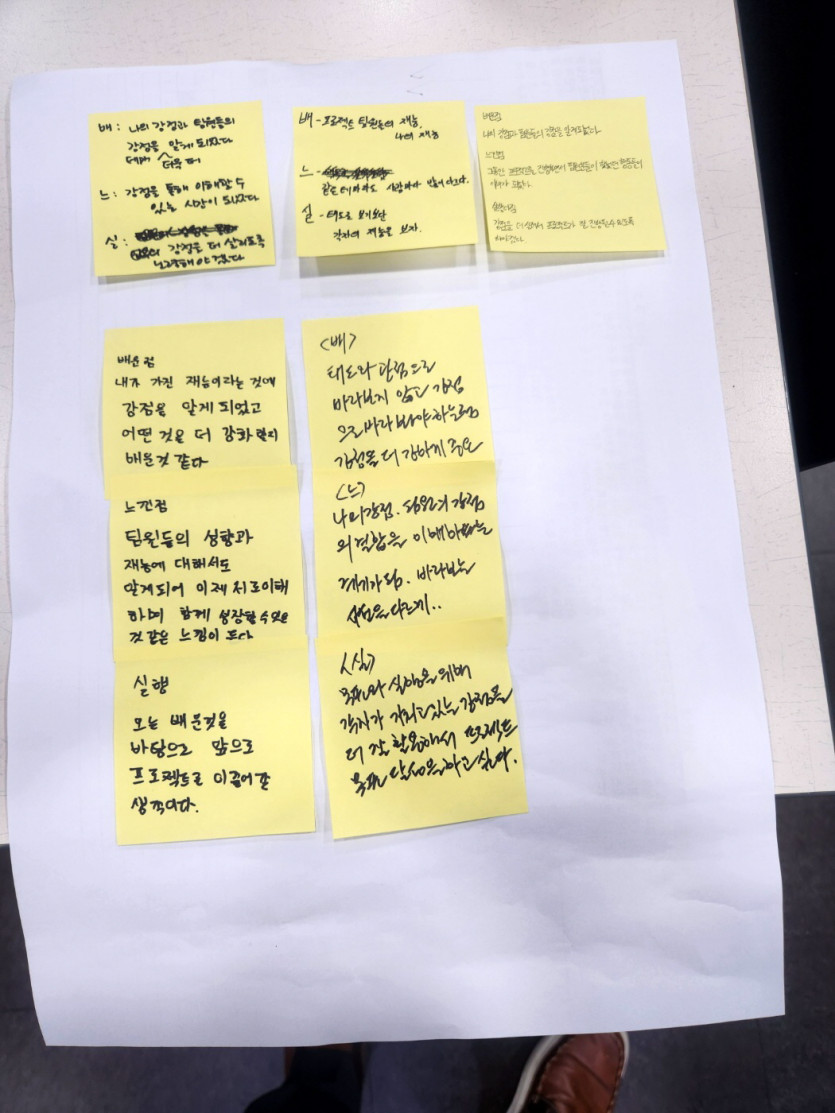 배 : 나의 강점과 팀원들의
강점을 알게 되었다
더욱 더
느 : 강점을 통해 이해할 수
있는 시간이 되었다
실 :
강점을 더 살리도록
노력해야 겠다
배 - 프로젝트 팀원들의 재능,
나의 재능
느 -
같은 테마라도 사람마다 다르다.
실 - 태도로 보기보단
각자의 재능을 보자.
배운점
나의 강점과 팀원들의 강점을 알게되었다.
느낀점
그동안 프로젝트를 진행하면서 팀원들이
이해가 되었다.
실행
강점을 더 살려서 프로젝트가 잘 진행될수 있도록
해야겠다.
배운점
내가 가진 재능이라는 것에
강점을 알게 되었고
어떤 것을 더 강화 할지
배운것 같다
느낀점
팀원들의 성향과
재능에 대해서도
알게되어 이제 서로이해
하며 함께 성장할수있을
것 같은 느낌이 든다
실행
오늘 배운것을
바탕으로 앞으로
프로젝트로 이끌어갈
생각이다.
<배>
태도와 관점으로
바라보지 않고 강점
으로 바라봐야 하는
강점을 더 강하게 중요
<느>
나의강점. 팀원의 강점
의 결합을 이해하는
계기가 됨. 바라보는
시선을 다르게..
<실>
목표와 실행을 위해
각자가 가지고 있는 강점을
더 잘 활용해서 프로젝트
목표 달성을 하고 싶다.